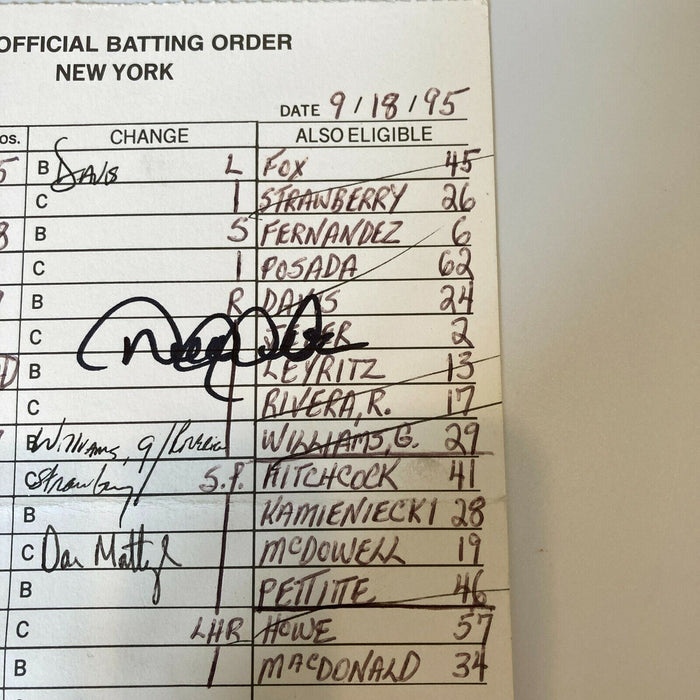 OFFICIAL BATTING ORDER
NEW YORK
DATE 9/18/95
OS. CHANGE ALSO ELIGIBLE
5 B Davis L FOX 45
C STRAWBERRY 26
8 B S FERNANDEZ 6
C POSADA 62
B R DAVIS 24
C JETER 2
D B LEYRITZ 13
C RIVERA, R. 17
B Williams, G / WILLIAMS, G. 29
C Strawberry S.P. HITCHCOCK 41
B KAMIENIECKI 28
C Don Mattingly MCDOWELL 19
B PETTITE 46
C LHR HOWE 57
B MACDONALD 34